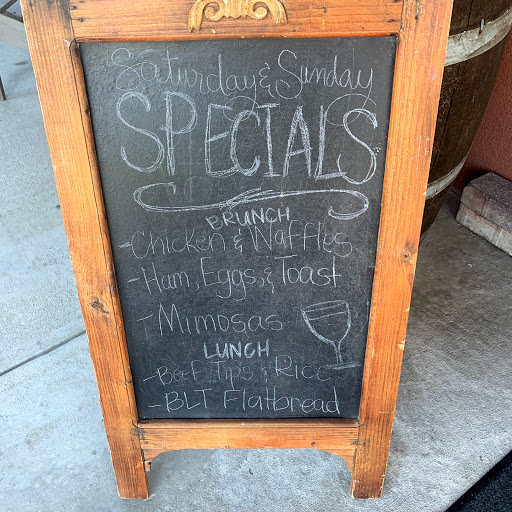 Saturday & Sunday
SPECIALS
BRUNCH
- Chicken & Waffles
- Ham, Eggs, & Toast
- Mimosas
LUNCH
- Beef Tips & Rice
- BLT Flatbread